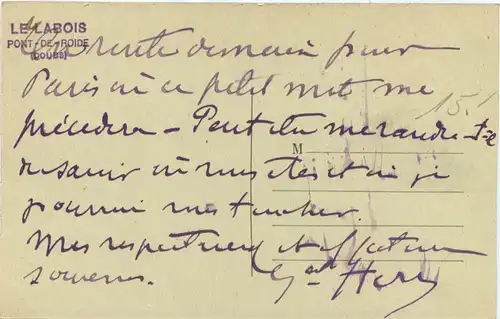 LE LABOIS
PONT-DE-ROIDE
(DOUBS)
En route demain pour
Paris où ce petit mot me
précédera - Peut être me rendre-t-e
de savoir où vous êtes et où je
pourrai vous toucher.
Mes respectueux et affectueux
souvenirs.
M
15.1